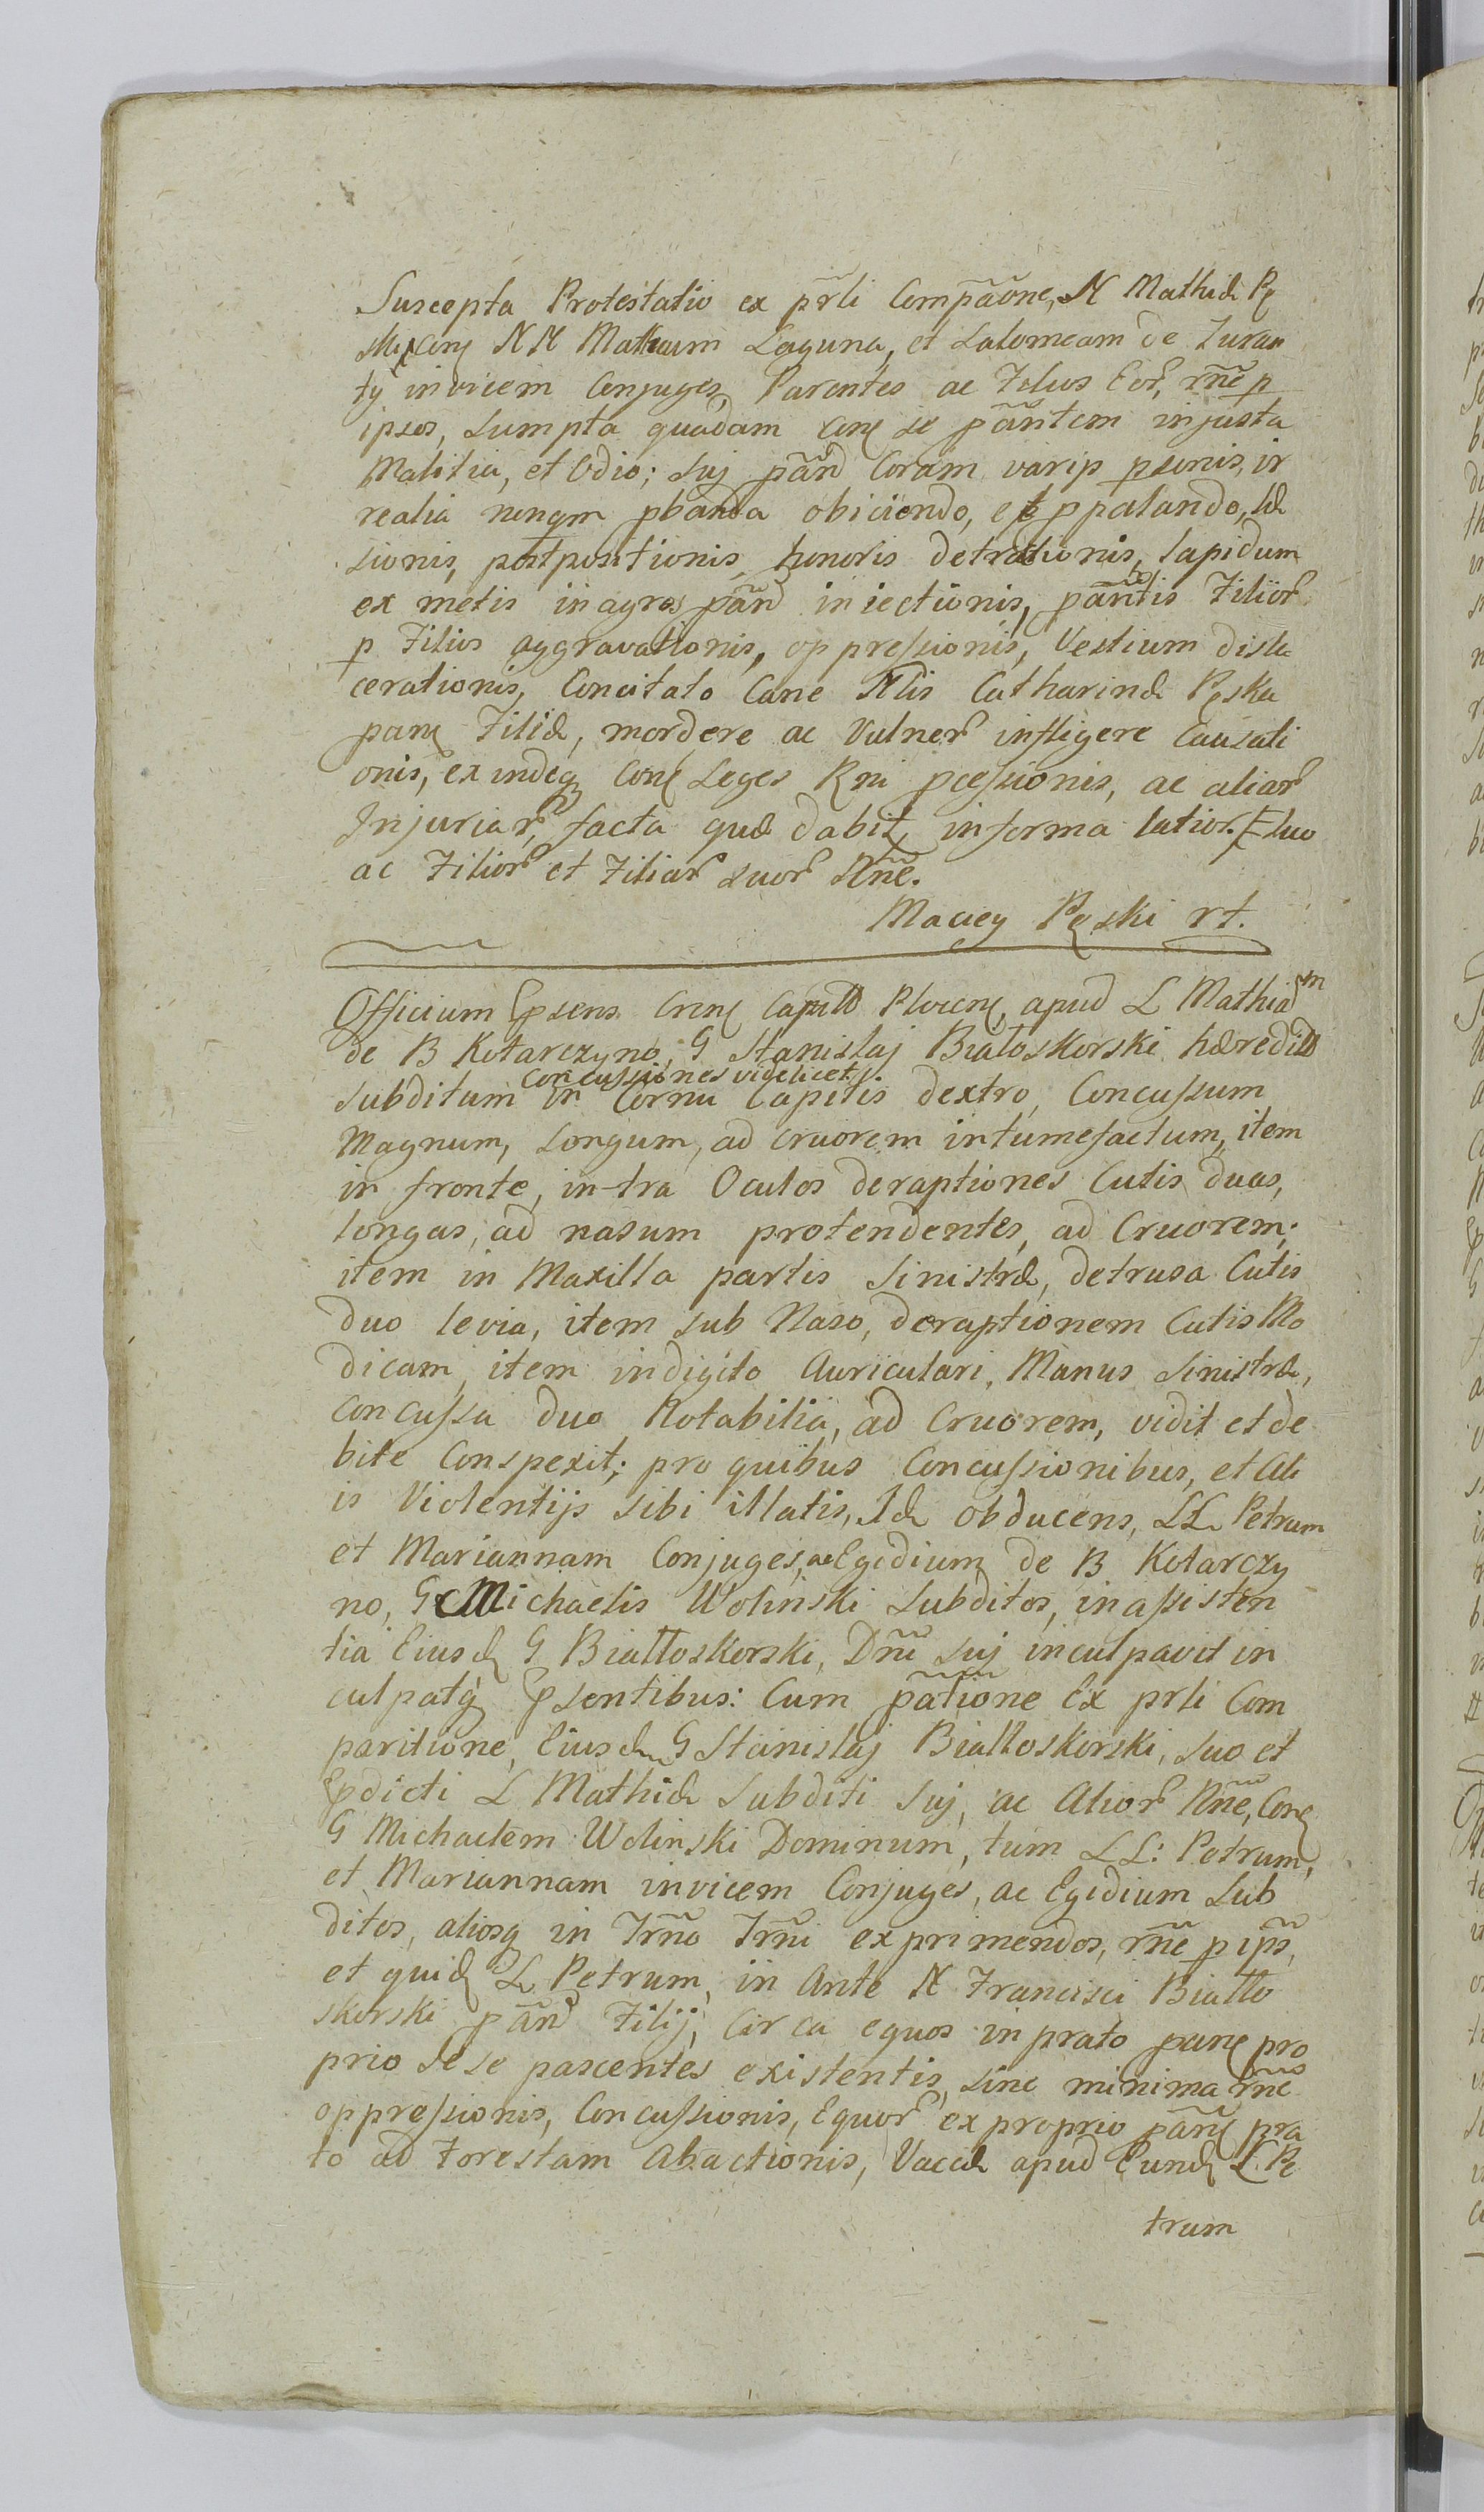 Suscepta Protestatio ex prli Compãone, N Mathiæ Pę
NN Mathæum Laguna, et Salomeam de Zuran
ty invicem Conjuges, Parentes ac Filios Eor, rñe p
ipsos, sumpta quadam conę se pãntem injusta
Malitia, et Odio; suj pãnd Coram varijs psonis, ir
realia nunqm pbanda obiciendo, et ppalando, læ
sionis, postpositionis, honoris detractionis, lapidum
ex metis in agros pãnd iniectionis, pãntis Filior
p Filios aggravationis, oppressionis, Vestium disla
cerationis, Concitato Cane Nlis Catharinæ Pęska
panę Filiæ, mordere ac Vulner infligere Causati
onis, exindeq Conę Leges Rni pcessionis, ac aliar
Injuriar, facta quæ dabit, informa latior. E suo
ac Filior et Filiar suor Nñe.
Maciey Pęski rt.
Officium Ppsens Crenę Capitle Plocenę, apud L Mathiam
de B Kotarczyno, G Stanislaj Białoskorski hæredis
Concussiones videlicet
subditum in Cornu Capitis dextro, Concussum
Magnum, Longum, ad cruorem intumefactum, item
in fronte, in-tra Oculos deraptiones Cutis duas,
longas, ad nasum protendentes, ad Cruorem;
item in Maxilla partis Sinistræ, detrusa Cutis
duo levia, item sub Naso, deraptionem Cutis Mo
dicam, item indigito Auriculari, Manus Sinistræ,
Concussa duo Notabilia, ad Cruorem, vidit et de
bite Conspexit; pro quibus Concussionibus, et Ali
is Violentijs sibi illatis, Idę obducens, LL Petrum
et Mariannam Conjuges, ac Egidium de B Kotarczy
no, G Michaelis Wolinski Subditos, in assisten
tia Eiusdę G Białłoskorski, Dñi suj inculpavit in
culpatq Ppsentibus: Cum pãtione Ex prli Com
paritione, Eiusdę G Stanislaj Białłoskorski, suo et
Ppdicti L Mathiæ Subditi Suj, ac Alior Nñe, Conę
G Michaelem Wolinski Dominum, tum LL: Petrum,
et Mariannam invicem Conjuges, ac Egidium Sub
ditos, aliosq in Trño Trñi exprimendos, rñe p ips̃,
et quidę L Petrum, in Ante N Francisci Biallo
skorski pãnd Filij, Circa equos in prato panę pro
prio se se pascentes existentis, sine minima rñe
oppressionis, Concussionis, Equor ex proprio pãnę pra
to ad Forestam Abactionis, Vaccæ apud Eundę L Pe
trum